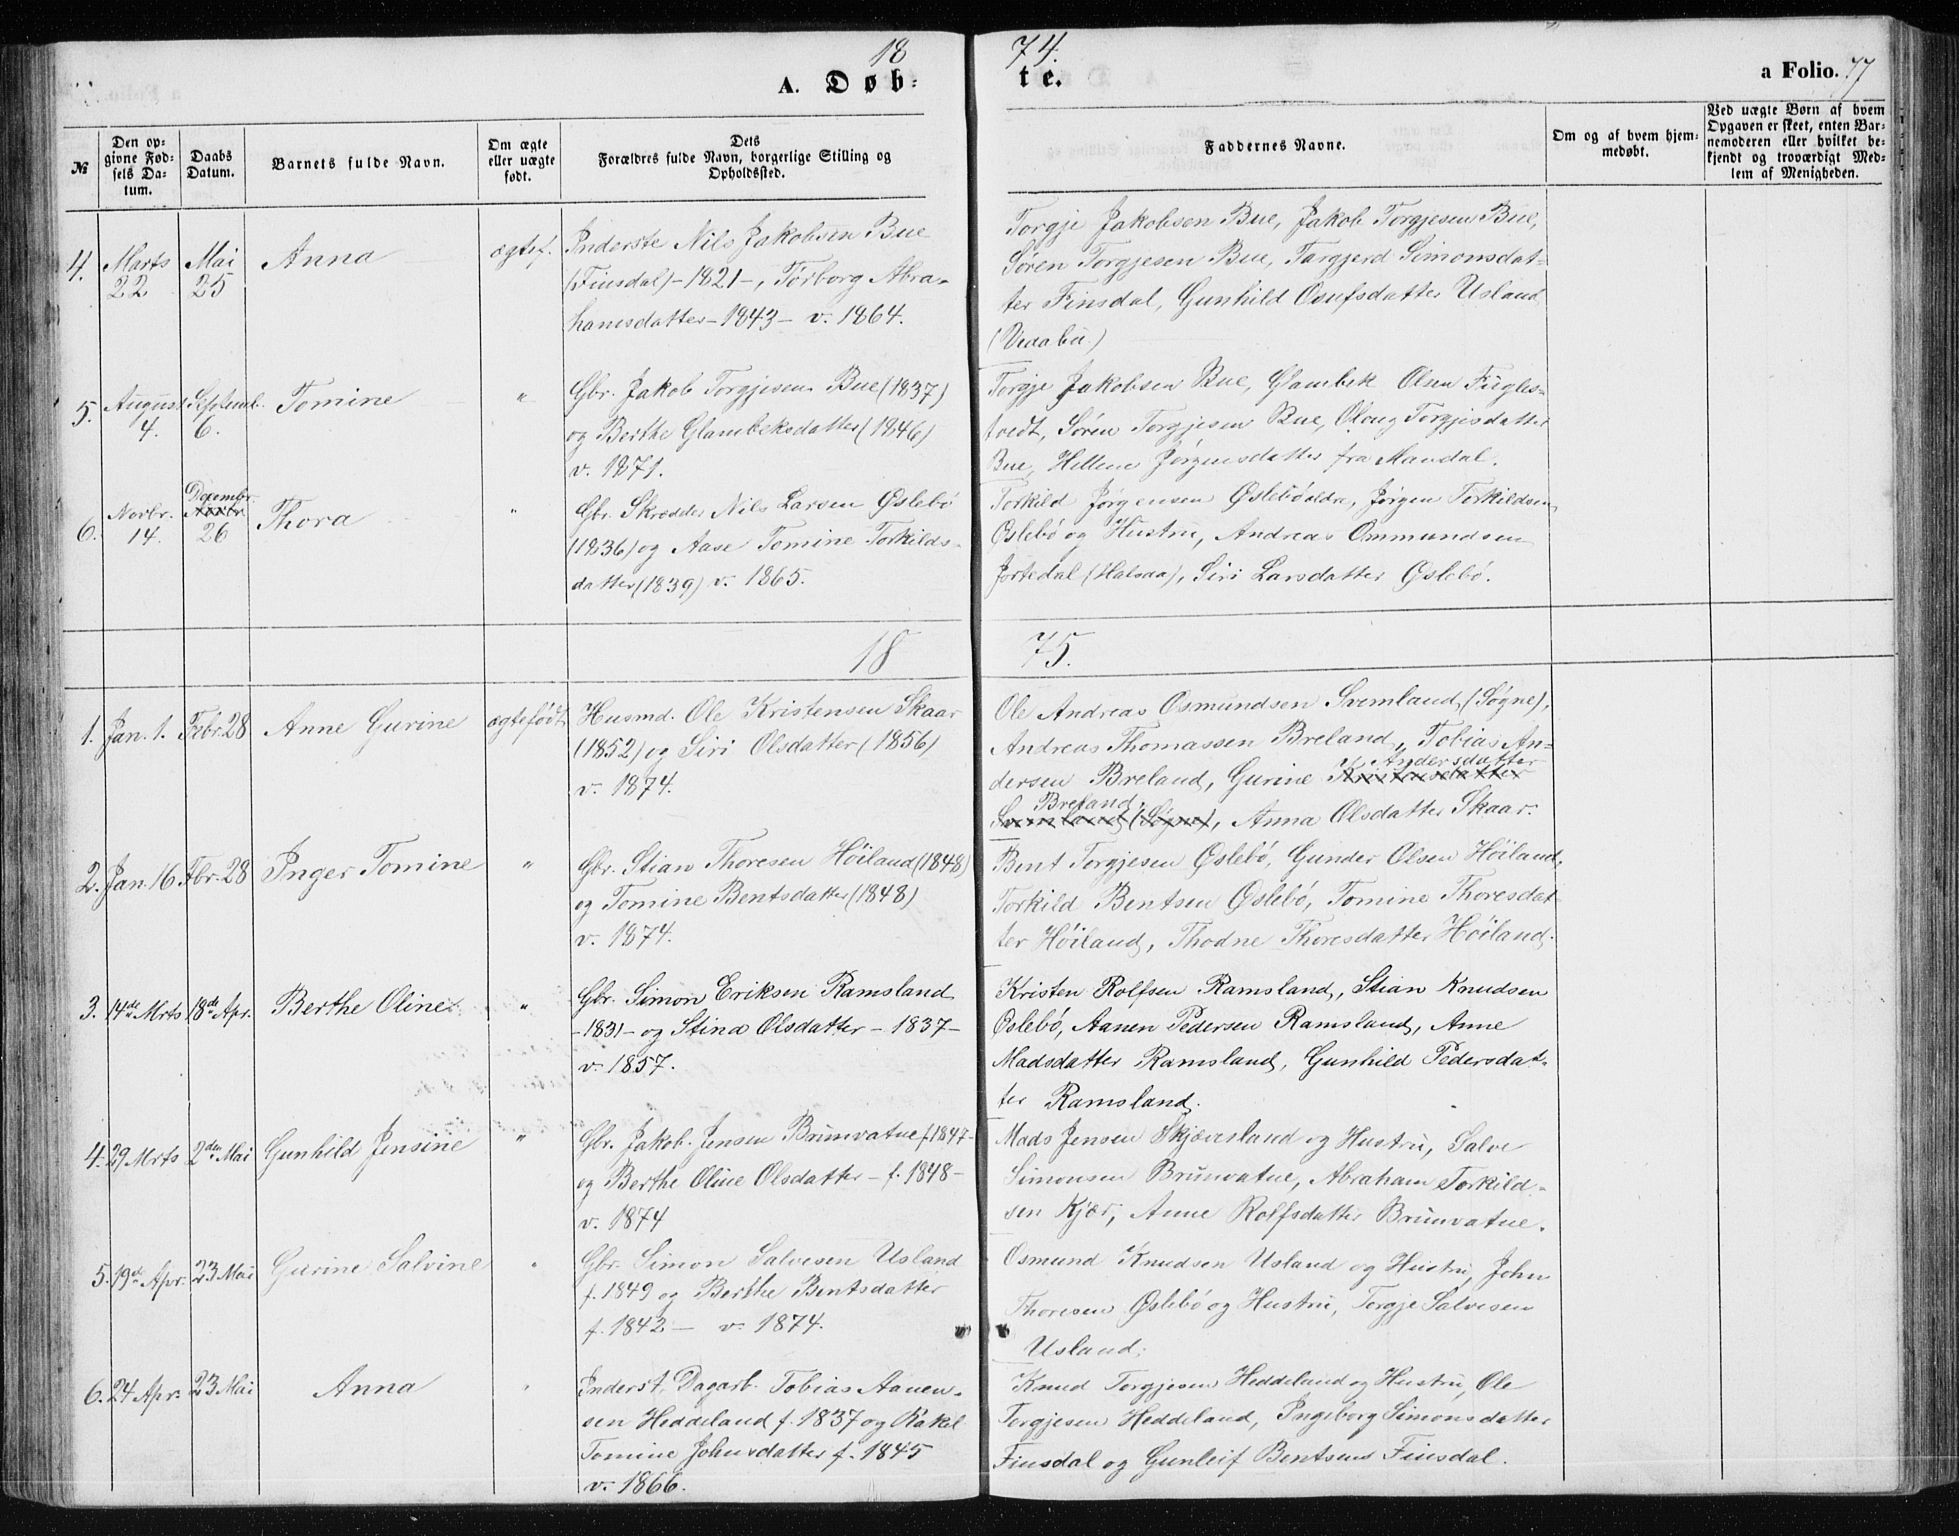 18 74.
A. Døbte.
a Folio. 77
№
Den op-
givne Fød-
sels Da-
tum.
Daabs
Datum.
Barnets fulde Navn.
Om ægte
eller uægte
født.
Dets
Forældres fulde Navn, borgerlige Stilling og
Opholdssted.
Faddernes Navne.
Om og af hvem hjem-
medøbt.
Ved uægte Børn af hvem
Opgaven er skeet, enten Bar-
nemoderen eller hvilket be-
kjendt og troværdigt Med-
lem af Menigheden.
4. Marts 22
Mai 25
Anna
ægtef.
Inderste Nils Jakobsen Bue
(Finsdal) - 1821 -, Torborg Abra-
hamsdatter - 1843 - v. 1864.
Torgje Jakobsen Bue, Jakob Torgjesen Bue,
Søren Torgjesen Bue, Targjerd Simonsdat-
ter Finsdal, Gunhild Osufsdatter Usland
(Vedabu)
5. August 4.
Septemb. 6.
Tomine
"
Gbr. Jakob Torgjesen Bue (1837)
og Berthe Glambeksdatter (1846)
v. 1871.
Torgje Jakobsen Bue, Glambek Olsen Fugles-
tvedt, Søren Torgjesen Bue, Oloug Torgjesdatter
Bue, Hellene Jørgensdatter fra Mandal.
6. Novbr. 14.
Decembr.
Novbr.
26
Thora
"
Gbr. Skrædder Nils Larsen Øslebø
(1836) og Aase Tomine Torkilds-
datter (1839) v. 1865.
Torkild Jørgensen Øslebø ældre, Jørgen Torkildsen
Øslebø og Hustru, Andreas Ommundsen
Jortedal (Halsaa), Siri Larsdatter Øslebø.
18 75.
1. Jan. 1.
Febr. 28
Anne Gurine
ægtefødt
Husmd. Ole Kristensen Skaar
(1852) og Siri Olsdatter (1856)
v. 1874.
Ole Andreas Osmundsen Svemland (Søgne),
Andreas Thomassen Breland, Tobias An-
Andersdatter
dersen Breland, Gurine Kristensdatter
Breland,
Svemland (Søgne), Anna Olsdatter Skaar.
2. Jan. 16
Fbr. 28
Inger Tomine
"
Gbr. Stian Thoresen Høiland (1848)
og Tomine Bentsdatter (1848)
v. 1874.
Bent Torgjesen Øslebø, Gunder Olsen Høiland,
Torkild Bentsen Øslebø, Tomine Thoresdat-
ter Høiland, Thodne Thoresdatter Høiland.
3. 14de Mrts
18de Apr.
Berthe Oline
"
Gbr. Simon Eriksen Ramsland
- 1831 - og Stina Olsdatter - 1837 -
v. 1857.
Kristen Rolfsen Ramsland, Stian Knudsen
Øslebø, Aanen Pedersen Ramsland, Anne
Madsdatter Ramsland, Gunhild Pedersdat-
ter Ramsland.
4. 29 Mrts
2den Mai
Gunhild Jensine
"
Gbr. Jakob Jensen Brunvatne f. 1847 -
og Berthe Oline Olsdatter - f. 1848 -
v. 1874
Mads Jensen Skjævesland og Hustru, Salve
Simonsen Brunvatne, Abraham Torkild-
sen Kjær, Anne Rolfsdatter Brunvatne.
5. 19de Apr.
23 Mai
Gurine Salvine
"
Gbr. Simon Salvesen Usland
f. 1849 og Berthe Bentsdatter
f. 1842 - v. 1874.
Osmund Knudsen Usland og Hustru, John
Thoresen Øslebø og Hustru, Torgje Salvesen
Usland.
6. 24 Apr.
23 Mai
Anna
"
Inderst, Dagarb. Tobias Aanen-
sen Heddeland f. 1837 og Rakel
Tomine Johnsdatter f. 1845
v. 1866.
Knud Torgjesen Heddeland og Hustru, Ole
Torgjesen Heddeland, Ingeborg Simonsdatter
Finsdal og Gunleif Bentsens Finsdal.